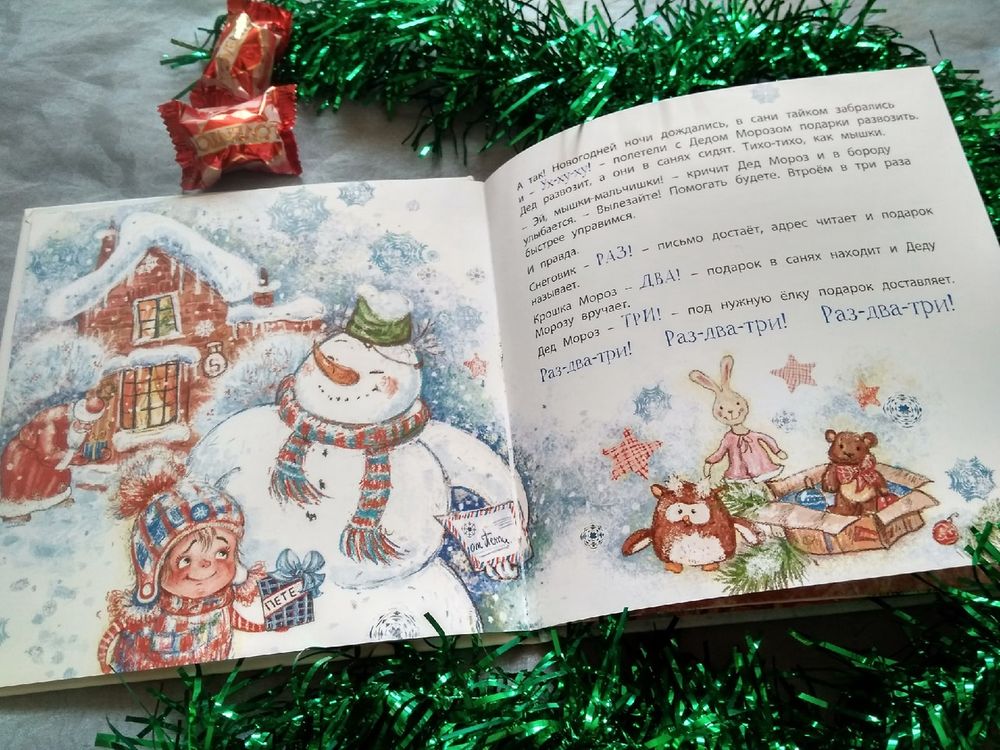 А так! Новогодней ночи дождались, в сани тайком забрались
и – Ух-ху-ху! – полетели с Дедом Морозом подарки развозить.
Дед развозит, а они в санях сидят. Тихо-тихо, как мышки.
– Эй, мышки-мальчишки! – кричит Дед Мороз и в бороду
улыбается. – Вылезайте! Помогать будете. Втроём в три раза
быстрее управимся.
И правда.
Снеговик – РАЗ! – письмо достаёт, адрес читает и подарок
называет.
Крошка Мороз – ДВА! – подарок в санях находит и Деду
Морозу вручает.
Дед Мороз – ТРИ! – под нужную ёлку подарок доставляет.
Раз-два-три! Раз-два-три! Раз-два-три!
5
ПЕТЕ
от Пети